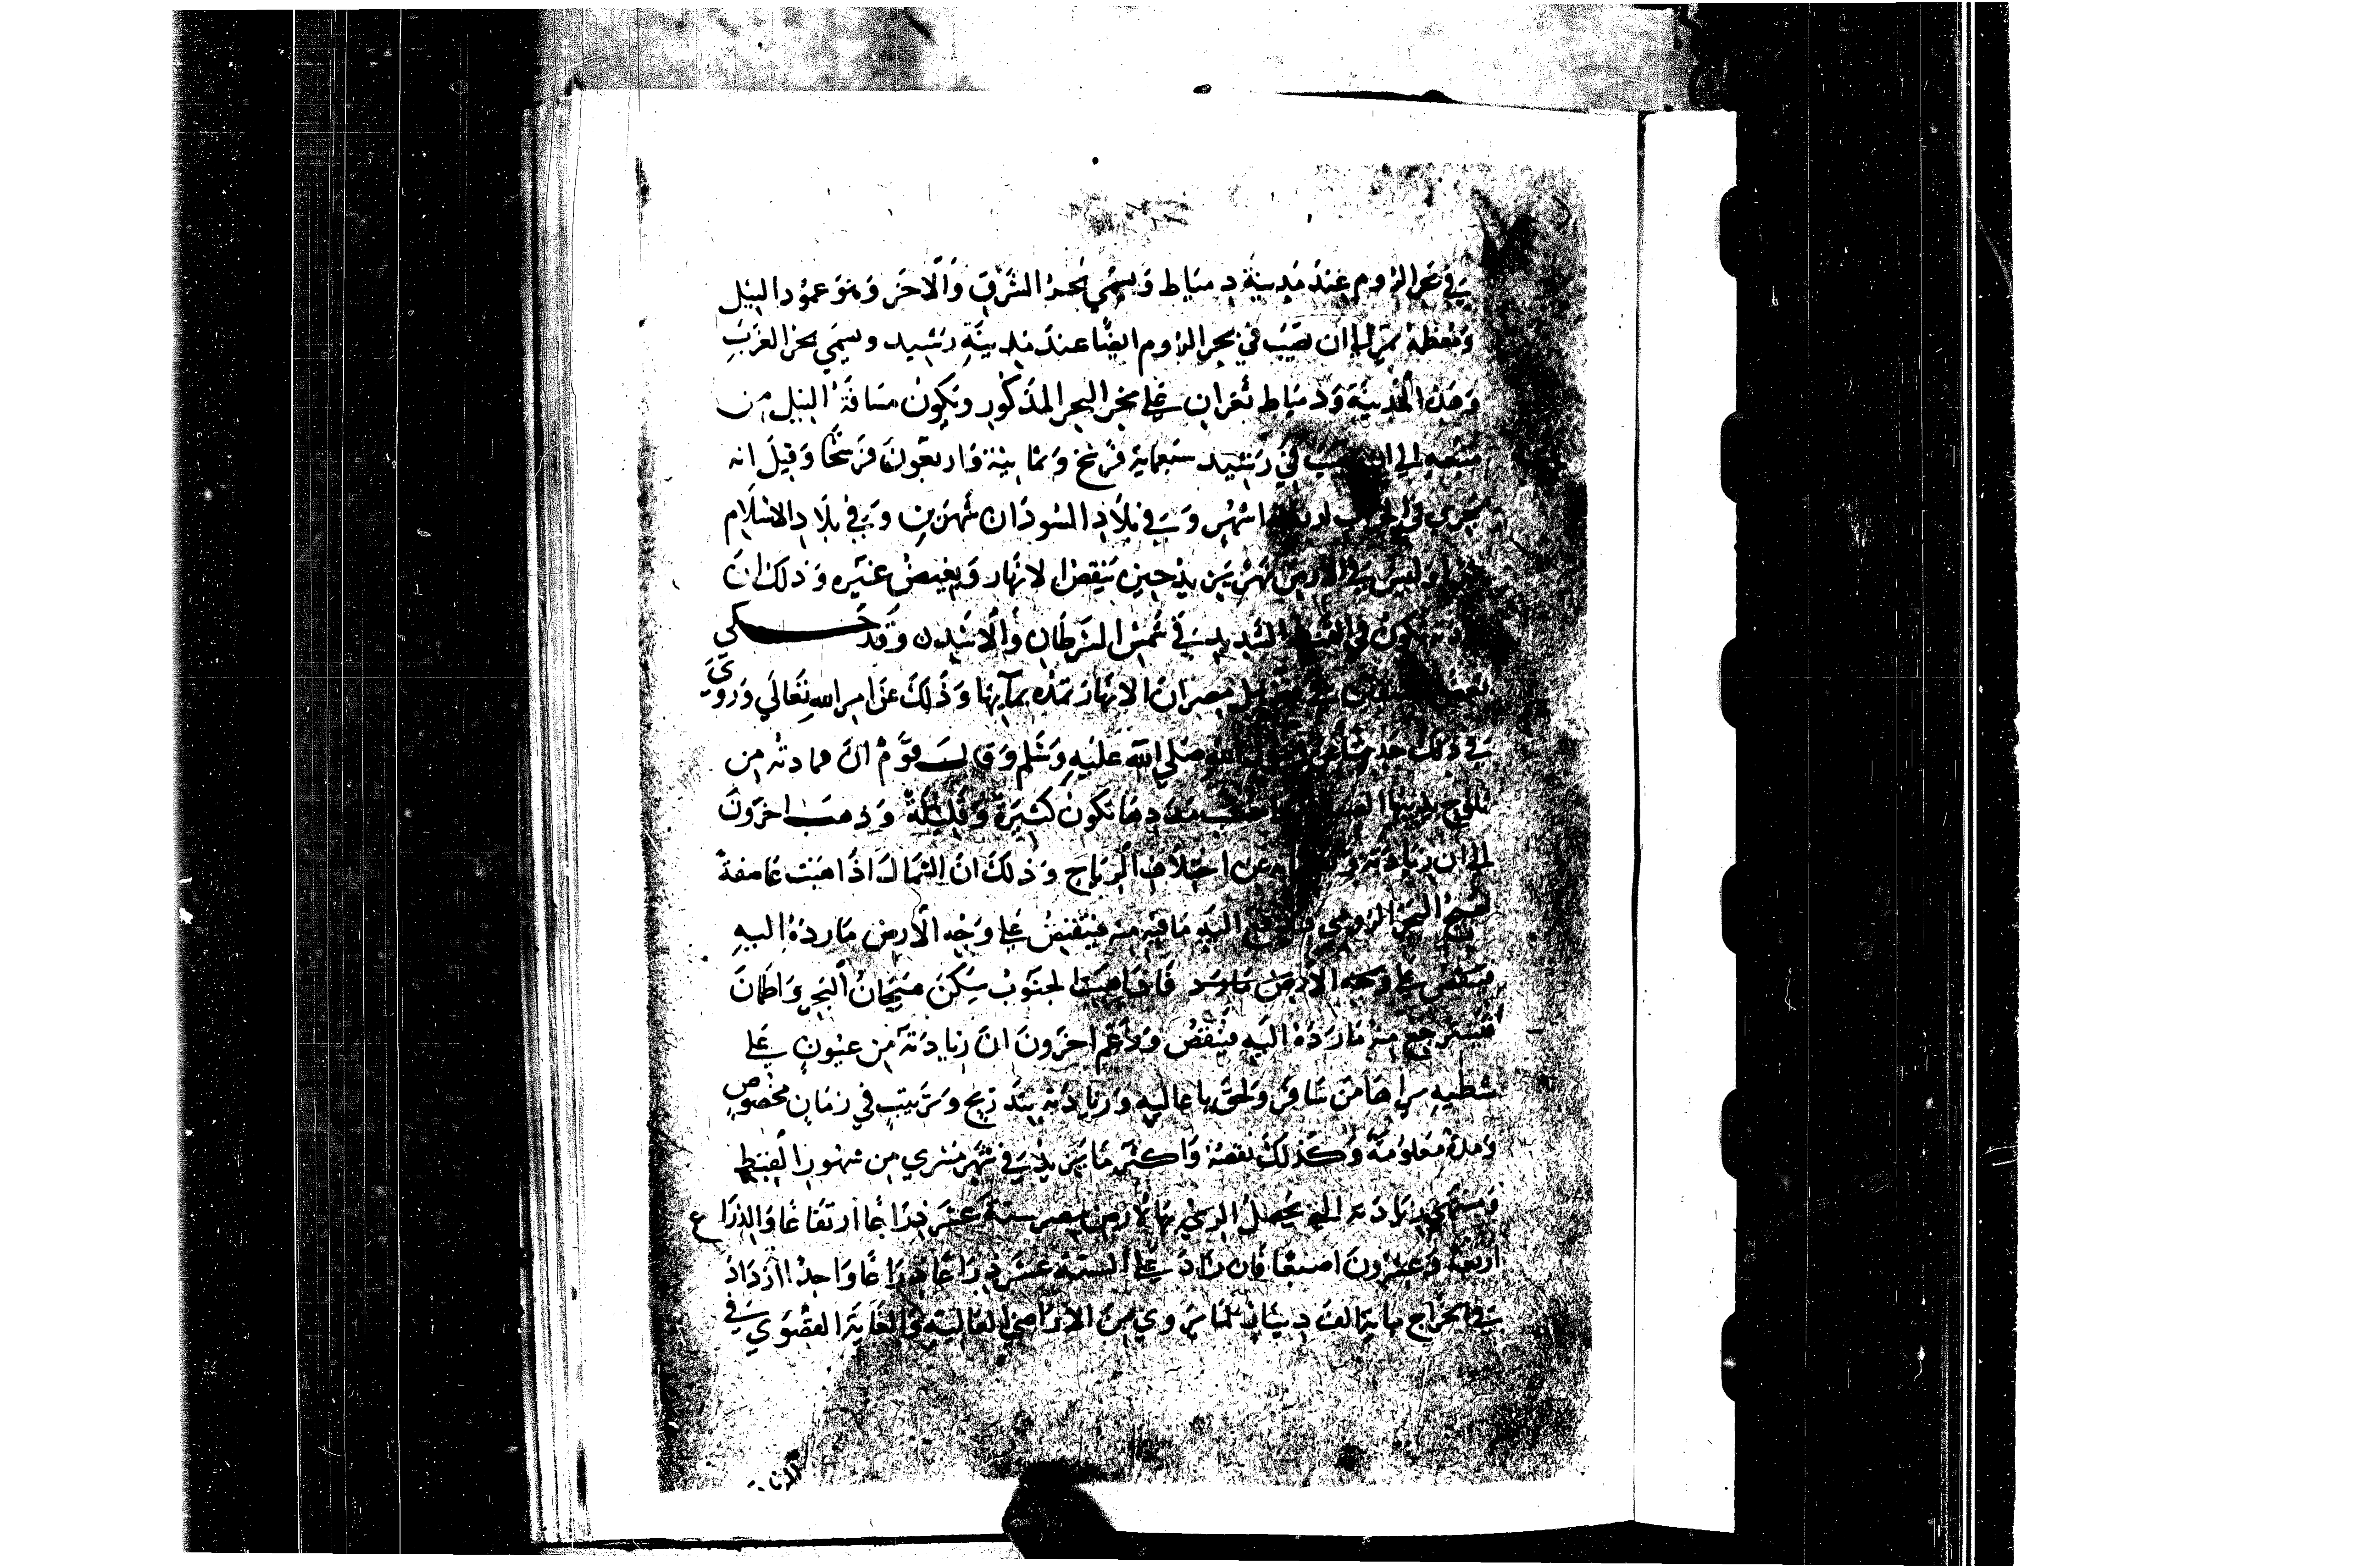 في بحر الروم عند مدينة دمياط ويسمى بحر الشرق والاخر وهو عمود النيل
ومعظمه يمر الى ان يصب في بحر الروم ايضا عند مدينة رشيد ويسمى بحر الغرب
وهذه المدينة ودمياط ثغران على بحر البحر المذكور وتكون مسافة النيل من
منبعه الى ان يصب في رشيد سبعماية فرسخ وثمانية واربعون فرسخا وقيل انه
يجري في الخراب اربعة اشهر وفي بلاد السودان شهرين وفي بلاد الاسلام
وليس في الارض نهر يزيد حين تنقص الانهار ويغيض غيره وذلك ان
تكون في القيظ الشديد في شمس السرطان والاسد وقد حكى
مصر ان الانهار تمده بمآيها وذلك عن امر الله تعالى وروي
في ذلك صلى الله عليه وسلم وقال قوم ان مادته من
ثلوج مددها تكون كثيرة وقليلة وذهب اخرون
الى ان زيادته عن اختلاف الرياح وذلك ان الشمال اذا هبت عاصفة
البحر الرومي اليه ما فيه منه فيفيض على وجه الارض ما رده اليه
على وجه الارض فاذا هبت الجنوب سكن هيجان البحر واطمان
فيسترجع منه ما رده اليه فينقص وزعم اخرون ان زيادته من عيون على
شطيه يراها من سافر ولحق باعاليه وزيادته بتدريج وترتيب في زمان مخصوص
ومدة معلومة وكذلك نقصه واكثر ما يزيد في شهر مسري من شهور القبط
ومنتهى زيادته التي يحصل الري بها لارض مصر ستة عشر ذراعا ارتفاعا والذراع
اربعة وعشرون اصبعا فان زاد على الستة عشر ذراعا ذراعا واحدا ازداد
في الخراج ماية الف دينار لما يروي من الاراضي العالية والغاية القصوى في